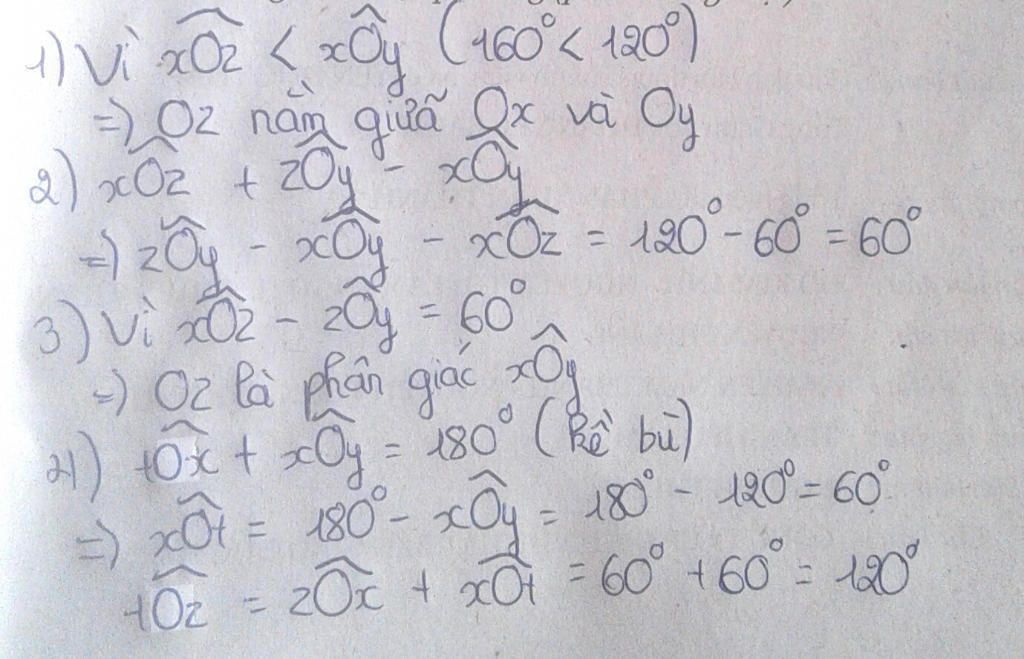 1) Vì xÔz < xÔy (160° < 120°)
=) Oz nằm giữa Ox và Oy
2) xÔz + zÔy - xÔy
=) zÔy - xÔy - xÔz = 120° - 60° = 60°
3) Vì xÔz - zÔy = 60°
=) Oz là phân giác xÔy
4) tÔx + xÔy = 180° (kề bù)
=) xÔt = 180° - xÔy = 180° - 120° = 60°
tÔz = zÔx + xÔt = 60° + 60° = 120°